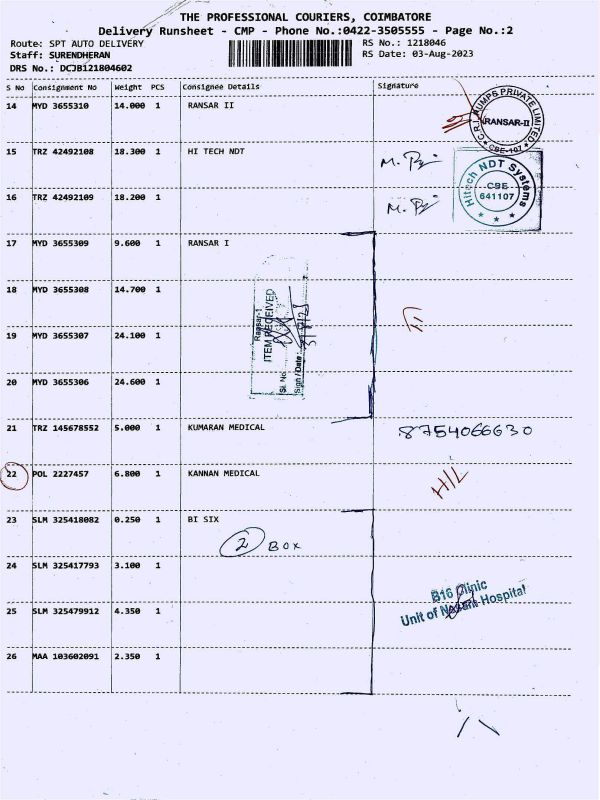 THE PROFESSIONAL COURIERS, COIMBATORE
Delivery Runsheet - CMP - Phone No.:0422-3505555 - Page No.:2
Route: SPT AUTO DELIVERY
RS No.: 1218046
Staff: SURENDHERAN
RS Date: 03-Aug-2023
DRS No.: DCJB121804602
S No Consignment No Weight PCS Consignee Details Signature
14 MYD 3655310 14.000 1 RANSAR II
C.R.I. PUMPS PRIVATE LIMITED
RANSAR-II
CBE-107
15 TRZ 42492108 18.300 1 HI TECH NDT
Hitech NDT Systems
CBE
641107
16 TRZ 42492109 18.200 1
17 MYD 3655309 9.600 1 RANSAR I
18 MYD 3655308 14.700 1
Ransar-1
ITEM RECEIVED
Sl. No.
Sign / Date:
19 MYD 3655307 24.100 1
20 MYD 3655306 24.600 1
21 TRZ 145678552 5.000 1 KUMARAN MEDICAL 8754066630
22 POL 2227457 6.800 1 KANNAN MEDICAL
H/L
23 SLM 325418082 0.250 1 BI SIX
2 BOX
24 SLM 325417793 3.100 1
B16 Clinic
Unit of Hospital
25 SLM 325479912 4.350 1
26 MAA 103602091 2.350 1